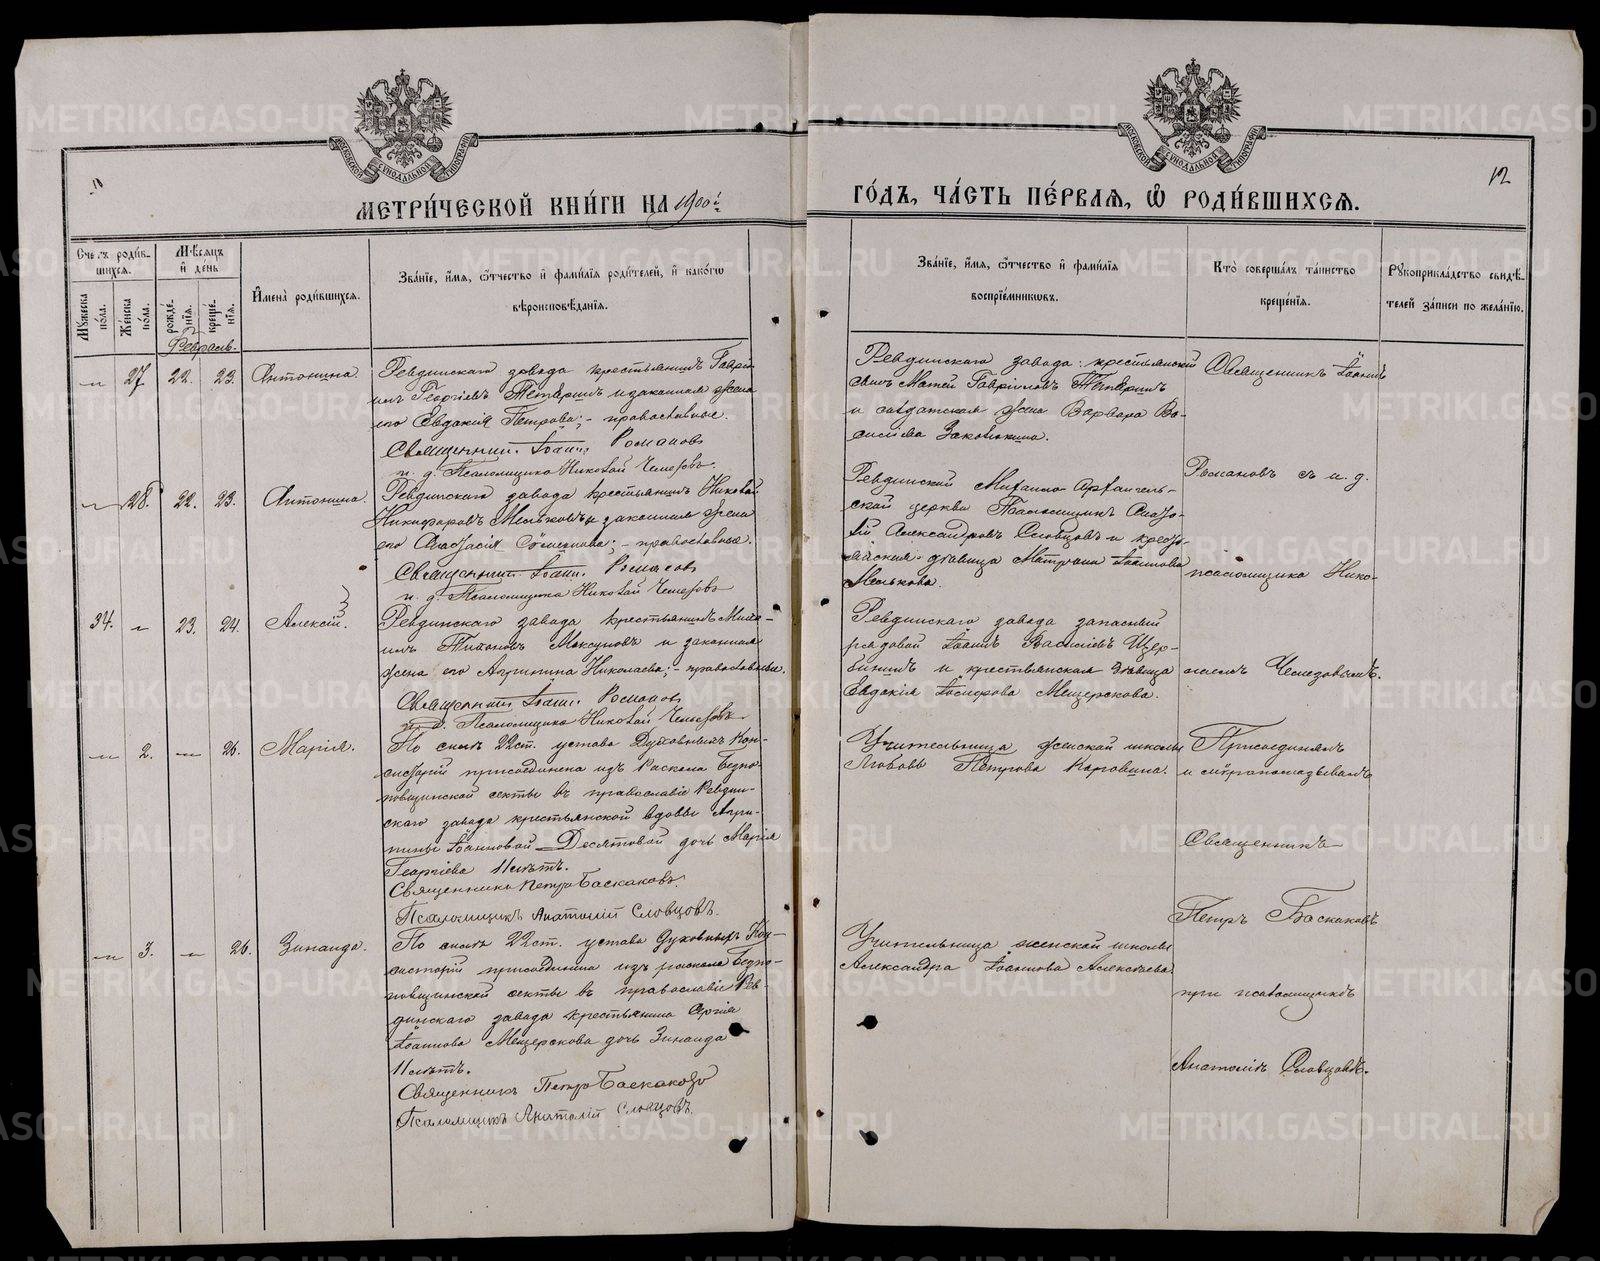 МЕТРИ́ЧЕСКОЙ КНИ́ГИ НА 1900й
ГО́ДЪ, ЧА́СТЬ ПЕ́РВАЯ, Ѽ РОДИ́ВШИХСЯ.
12
Счетъ родив-
шихся.
Мѣсяцъ
и день
Мужеска
пола.
Женска
пола.
рожде-
нія.
креще-
нія.
Имена родившихся.
Званіе, имя, отчество и фамилія родителей, и какого
вѣроисповѣданія.
Званіе, имя, отчество и фамилія
воспріемниковъ.
Кто совершалъ таинство
крещенія.
Рукоприкладство свидѣ-
телей записи по желанію.
Февраль.
27 22. 23. Антонина.
Ревдинскаго завода крестьянинъ Гаврі-
илъ Георгіевъ Тетеринъ и законная жена
его Евдокія Петрова; - православные.
Священникъ Іоаннъ Романовъ
и. д. Псаломщика Николай Чемезовъ.
Ревдинскаго завода: крестьянскій
сынъ Матѳей Гавріиловъ Тетеринъ
и солдатская жена Варвара Ва-
сильева
Священникъ Іоаннъ
28. 22. 23. Антонина.
Ревдинскаго завода крестьянинъ Николай
Никифоровъ Мельковъ и законная жена
его Анастасія Сѵмеонова; - православные.
Священникъ Іоаннъ Романовъ
и. д. Псаломщика Николай Чемезовъ
Ревдинской Михаило-Архангель-
ской церкви Псаломщикъ Анато-
лій Александровъ Словцовъ и кресть-
янская дѣвица Матрона Іоаннова
Мелькова.
Романовъ съ и. д.
псаломщика Нико-
34. 23. 24. Алексій.
Ревдинскаго завода крестьянинъ
Тихоновъ и законная
жена его Агрипина Николаева; - православные.
Священникъ Іоаннъ Романовъ
и. д. Псаломщика Николай Чемезовъ
Ревдинскаго завода запасный
рядовой Іоаннъ Василіевъ Щер-
бининъ и крестьянская дѣвица
Евдокія Іосифова Мещерякова.
лаемъ Чемезовымъ.
2. 26. Марія.
По силѣ 22 ст. устава Духовныхъ Кон-
систорій присоединена изъ Раскола Безпо-
повщинской секты въ православіе Ревдин-
скаго завода крестьянской вдовы Агри-
пины Іоанновой Десятовой дочь Марія
Георгіева 11 лѣтъ.
Священникъ Петръ Баскаковъ.
Псаломщикъ Анатолій Словцовъ.
Учительница женской школы
Любовь Петрова Коровина.
Присоединялъ
и мѵропомазывалъ
Священникъ
Петръ Баскаковъ
3. 26. Зинаида.
По силѣ 22 ст. устава Духовныхъ Кон-
систорій присоединена изъ раскола Безпо-
повщинской секты въ православіе Рев-
динскаго завода крестьянина
Іоаннова Мещерякова дочь Зинаида
11 лѣтъ.
Священникъ Петръ Баскаковъ
Псаломщикъ Анатолій Словцовъ.
Учительница женской школы
Александра Іоаннова Алексѣева.
при псаломщикѣ
Анатоліѣ Словцовѣ.
METRIKI.GASO-URAL.RU